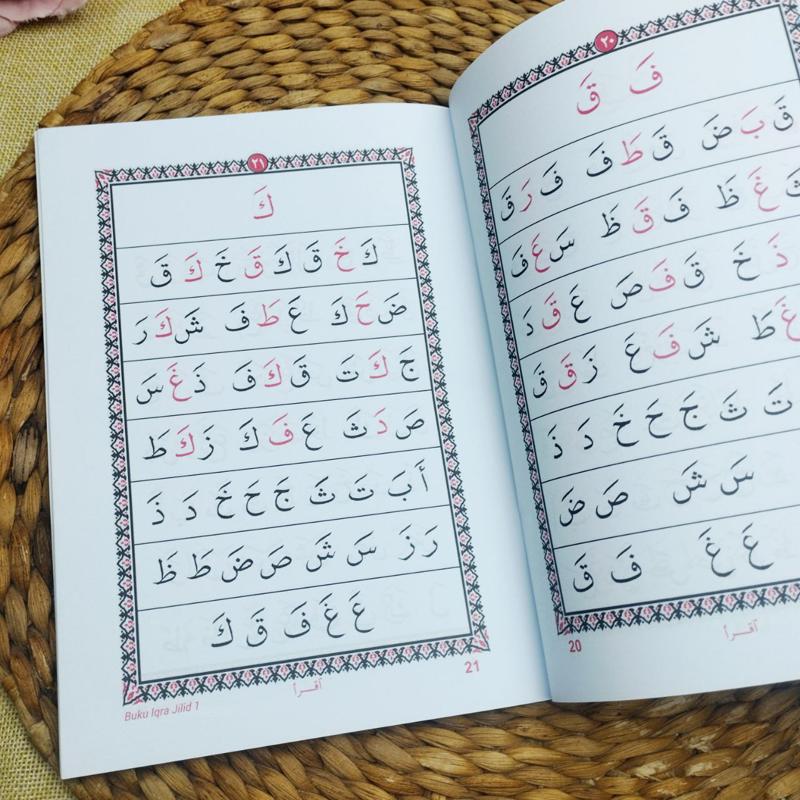 ٢٠
فَ قَ
قَ بَ ضَ قَ طَ فَ فَ رَ قَ
ثَ غَ ظَ فَ قَ ظَ سَ عَ فَ
ذَ خَ قَ فَ صَ عَ قَ دَ
غَ طَ شَ فَ عَ زَ قَ قَ
تَ ثَ جَ حَ خَ دَ ذَ
سَ شَ صَ ضَ
عَ غَ فَ قَ
اقرأ
20
٢١
كَ
كَ خَ قَ كَ قَ خَ كَ قَ
ضَ حَ كَ عَ طَ فَ شَ كَ رَ
جَ كَ تَ قَ كَ فَ ذَ غَ سَ
صَ دَ ثَ عَ فَ كَ زَ كَ طَ
أَ بَ تَ ثَ جَ حَ خَ دَ ذَ
رَ زَ سَ شَ صَ ضَ طَ ظَ
عَ غَ فَ قَ كَ
اقرأ
21
Buku Iqra Jilid 1